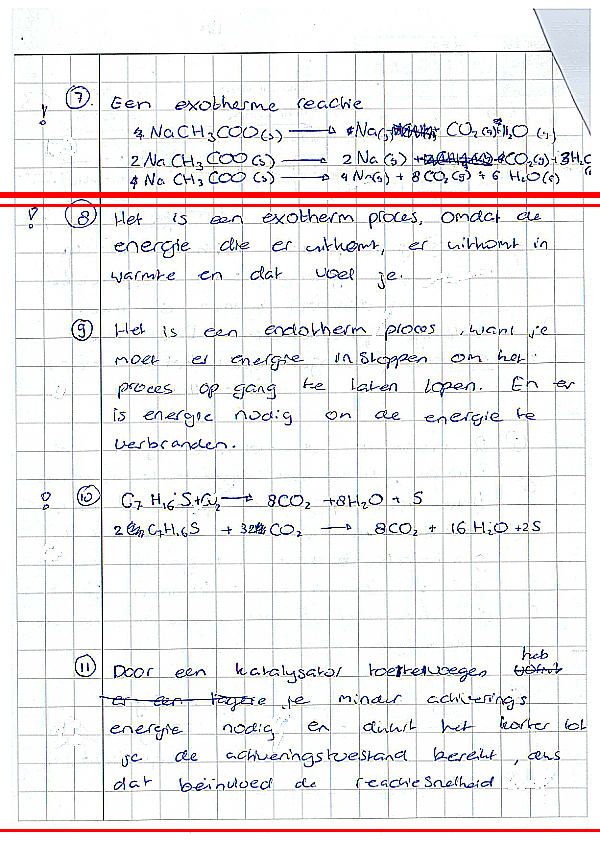 ! 7. Een exotherme reactie
4 NaCH3COO(s) → 4Na(s) CO2(g) + H2O(g)
2 NaCH3COO(s) → 2 Na(s) + 4CO2(g) + 3H2O
4 NaCH3COO(s) → 4 Na(s) + 8 CO2(g) + 6 H2O(g)
! 8 Het is een exotherm proces, omdat de
energie die er uitkomt, er uitkomt in
warmte en dat voel je.
9 Het is een endotherm proces, want je
moet er energie in stoppen om het
proces op gang te laten lopen. En er
is energie nodig om de energie te
verbranden.
! 10 C7H16S + O2 → 8CO2 + 8H2O + S
2 C7H16S + 32 CO2 → 8CO2 + 16 H2O + 2S
heb
11 Door een katalysator toe te voegen
er een lagere je minder activerings
energie nodig en duurt het korter tot
je de activeringstoestand bereikt, dus
dat beinvloed de reactiesnelheid